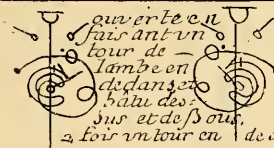 ouverte en
faisant vn
tour de
lambe en
dedans et
batu des-
sus et deßous,
2 fois vn tour en de